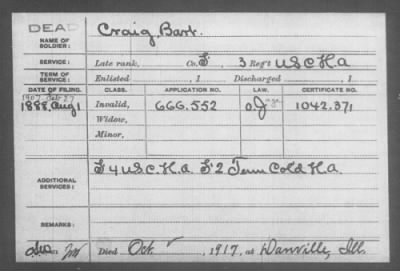 DEAD
NAME OF SOLDIER: Craig, Bart.
SERVICE: Late rank, Co. F, 3 Reg't U.S.C.H.A.
TERM OF SERVICE: Enlisted , 1 Discharged , 1
DATE OF FILING. CLASS. APPLICATION NO. LAW. CERTIFICATE NO.
1907, Feb 27
1888, Aug 1 Invalid, 666.552 1042.371
Widow,
Minor,
ADDITIONAL SERVICES: F 4 U.S.C.H.A. F 2 Tenn Cold H.A.
REMARKS:
Died Oct. , 1917, at Danville, Ill.